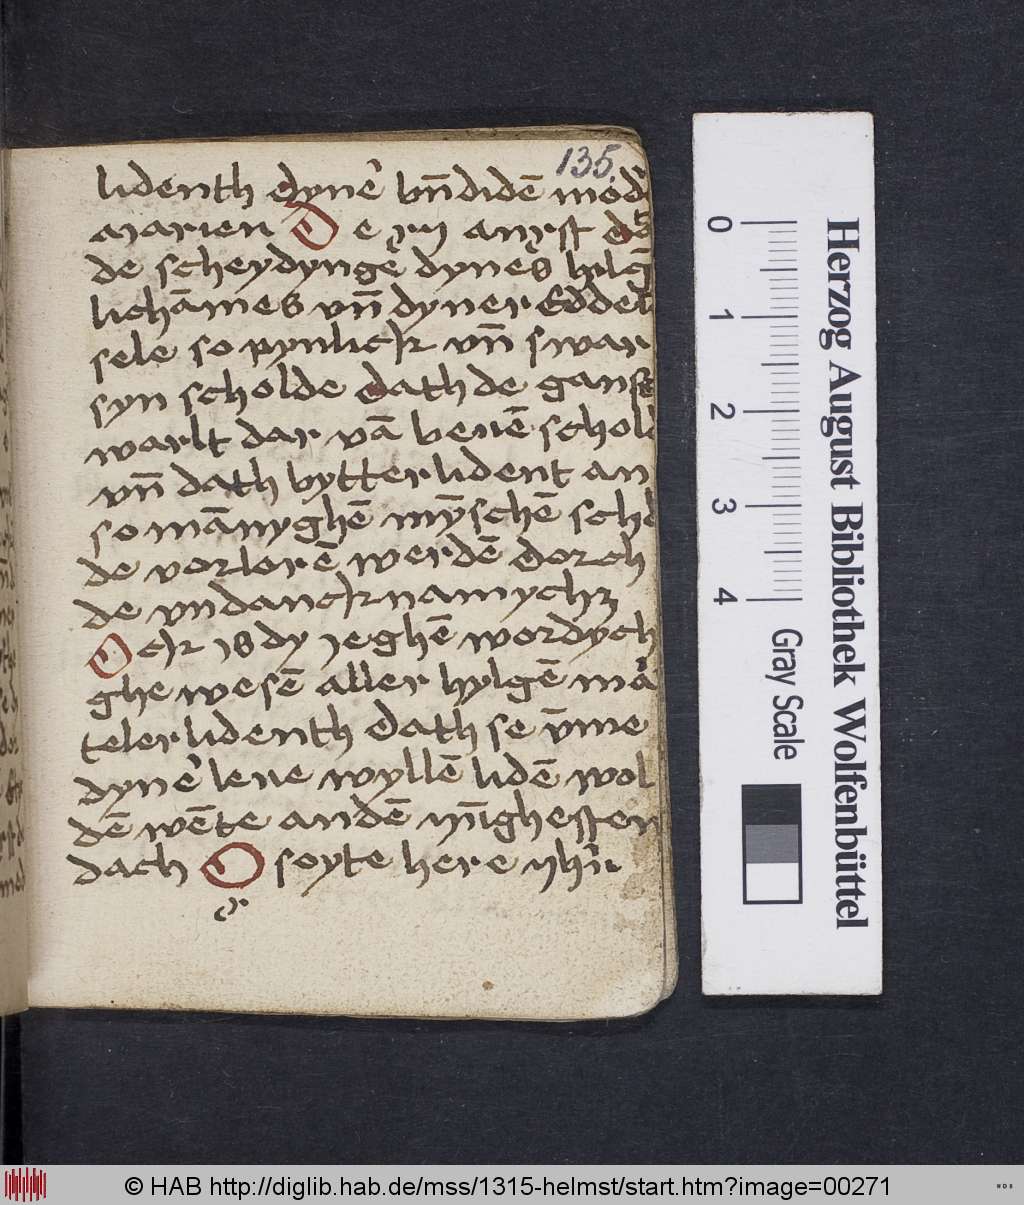 135.
lidenth dyne᷑ vn̄ didē mod᷑
marien De xiij anxst
de scheydynge dynes hilgē
lichāmes vn̄ dyner eddelē
sele so pynlick vn̄ swar
syn scholde dath de ganse
warlt dar vā beuē scholde
vn̄ dath bytter lident an
so mānyghē mȳschē
de vorlorē werdē dorch
de vndancknamycheꝫ
Ock is dy jeghē wordych
ghe wesē aller hylgē mar
teler lidenth dath se vm̄e
dyne᷑ leue wyllē lidē wol
dē wēte an dē ynghesten
dach O soyte here
Herzog August Bibliothek Wolfenbüttel
0 1 2 3 4 Gray Scale
© HAB http://diglib.hab.de/mss/1315-helmst/start.htm?image=00271